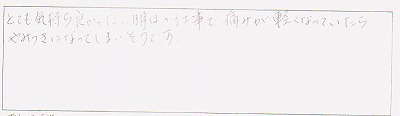 とても気持ち良かった、明日の仕事で痛みが軽くなっていたら
やみつきになってしまいそうです。